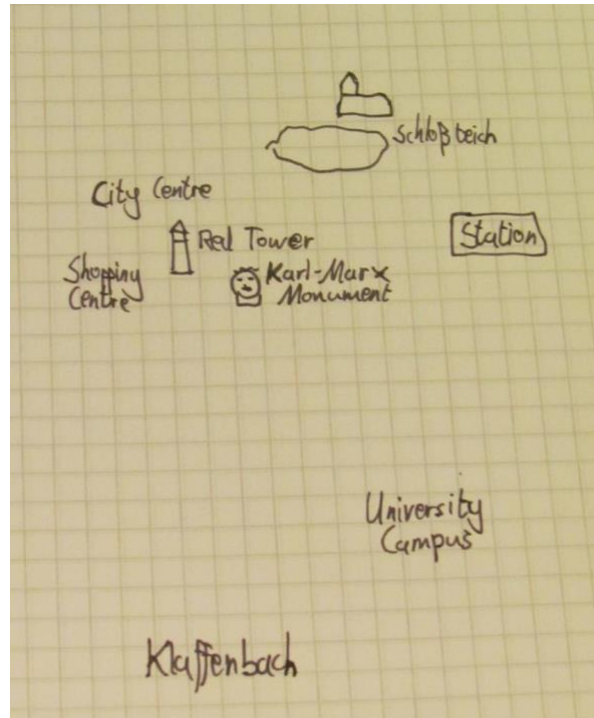 Schloßteich
City Centre
Red Tower
Station
Shopping
Centre
Karl-Marx
Monument
University
Campus
Klaffenbach